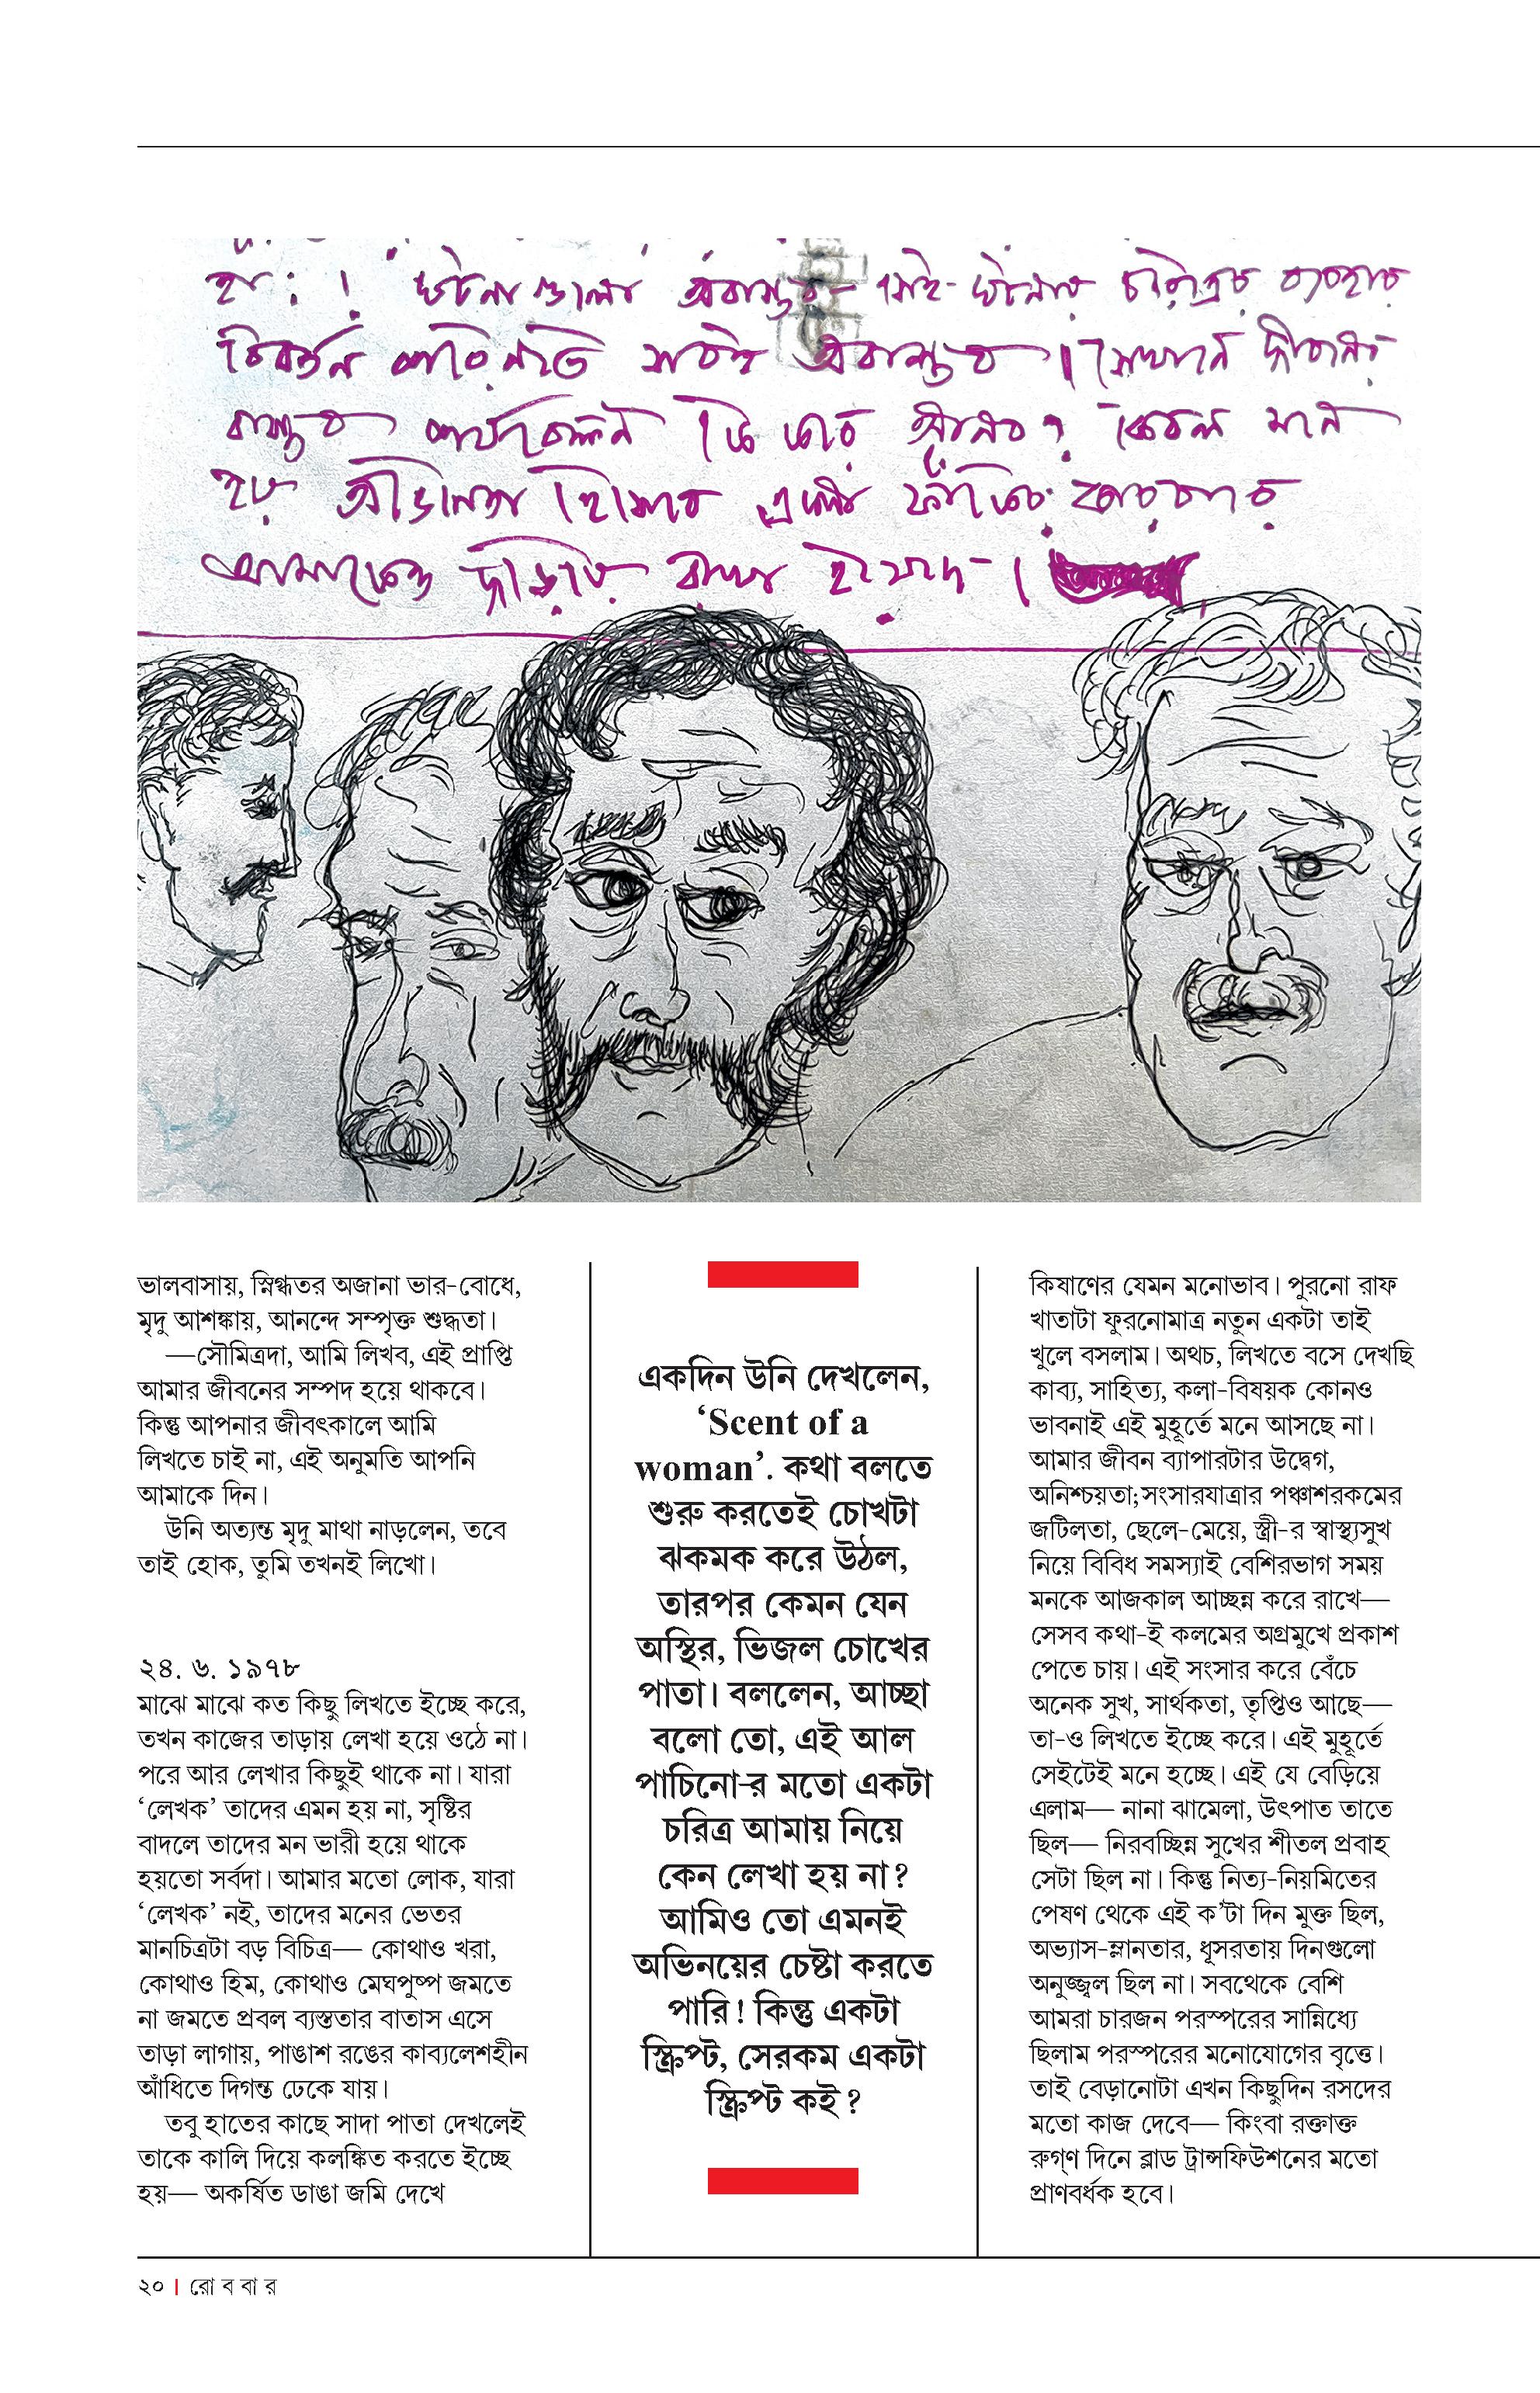 বাস্তব
হয়
ভালবাসায়, স্নিগ্ধতর অজানা ভার-বোধে,
মৃদু আশঙ্কায়, আনন্দে সম্পৃক্ত শুদ্ধতা।
—সৌমিত্রদা, আমি লিখব, এই প্রাপ্তি
আমার জীবনের সম্পদ হয়ে থাকবে।
কিন্তু আপনার জীবৎকালে আমি
লিখতে চাই না, এই অনুমতি আপনি
আমাকে দিন।
উনি অত্যন্ত মৃদু মাথা নাড়লেন, তবে
তাই হোক, তুমি তখনই লিখো।
২৪. ৬. ১৯৭৮
মাঝে মাঝে কত কিছু লিখতে ইচ্ছে করে,
তখন কাজের তাড়ায় লেখা হয়ে ওঠে না।
পরে আর লেখার কিছুই থাকে না। যারা
‘লেখক’ তাদের এমন হয় না, সৃষ্টির
বাদলে তাদের মন ভারী হয়ে থাকে
হয়তো সর্বদা। আমার মতো লোক, যারা
‘লেখক’ নই, তাদের মনের ভেতর
মানচিত্রটা বড় বিচিত্র— কোথাও খরা,
কোথাও হিম, কোথাও মেঘপুষ্প জমতে
না জমতে প্রবল ব্যস্ততার বাতাস এসে
তাড়া লাগায়, পাঙাশ রঙের কাব্যলেশহীন
আঁধিতে দিগন্ত ঢেকে যায়।
তবু হাতের কাছে সাদা পাতা দেখলেই
তাকে কালি দিয়ে কলঙ্কিত করতে ইচ্ছে
হয়— অকর্ষিত ডাঙা জমি দেখে
একদিন উনি দেখলেন,
‘Scent of a
woman’. কথা বলতে
শুরু করতেই চোখটা
ঝকমক করে উঠল,
তারপর কেমন যেন
অস্থির, ভিজল চোখের
পাতা। বললেন, আচ্ছা
বলো তো, এই আল
পাচিনো-র মতো একটা
চরিত্র আমায় নিয়ে
কেন লেখা হয় না?
আমিও তো এমনই
অভিনয়ের চেষ্টা করতে
পারি! কিন্তু একটা
স্ক্রিপ্ট, সেরকম একটা
স্ক্রিপ্ট কই?
কিষাণের যেমন মনোভাব। পুরনো রাফ
খাতাটা ফুরনোমাত্র নতুন একটা তাই
খুলে বসলাম। অথচ, লিখতে বসে দেখছি
কাব্য, সাহিত্য, কলা-বিষয়ক কোনও
ভাবনাই এই মুহূর্তে মনে আসছে না।
আমার জীবন ব্যাপারটার উদ্বেগ,
অনিশ্চয়তা;সংসারযাত্রার পঞ্চাশরকমের
জটিলতা, ছেলে-মেয়ে, স্ত্রী-র স্বাস্থ্যসুখ
নিয়ে বিবিধ সমস্যাই বেশিরভাগ সময়
মনকে আজকাল আচ্ছন্ন করে রাখে—
সেসব কথা-ই কলমের অগ্রমুখে প্রকাশ
পেতে চায়। এই সংসার করে বেঁচে
অনেক সুখ, সার্থকতা, তৃপ্তিও আছে—
তা-ও লিখতে ইচ্ছে করে। এই মুহূর্তে
সেইটেই মনে হচ্ছে। এই যে বেড়িয়ে
এলাম— নানা ঝামেলা, উৎপাত তাতে
ছিল— নিরবচ্ছিন্ন সুখের শীতল প্রবাহ
সেটা ছিল না। কিন্তু নিত্য-নিয়মিতের
পেষণ থেকে এই ক’টা দিন মুক্ত ছিল,
অভ্যাস-ম্লানতার, ধূসরতায় দিনগুলো
অনুজ্জ্বল ছিল না। সবথেকে বেশি
আমরা চারজন পরস্পরের সান্নিধ্যে
ছিলাম পরস্পরের মনোযোগের বৃত্তে।
তাই বেড়ানোটা এখন কিছুদিন রসদের
মতো কাজ দেবে— কিংবা রক্তাক্ত
রুগ্‌ণ দিনে ব্লাড ট্রান্সফিউশনের মতো
প্রাণবর্ধক হবে।
২০ | রোববার